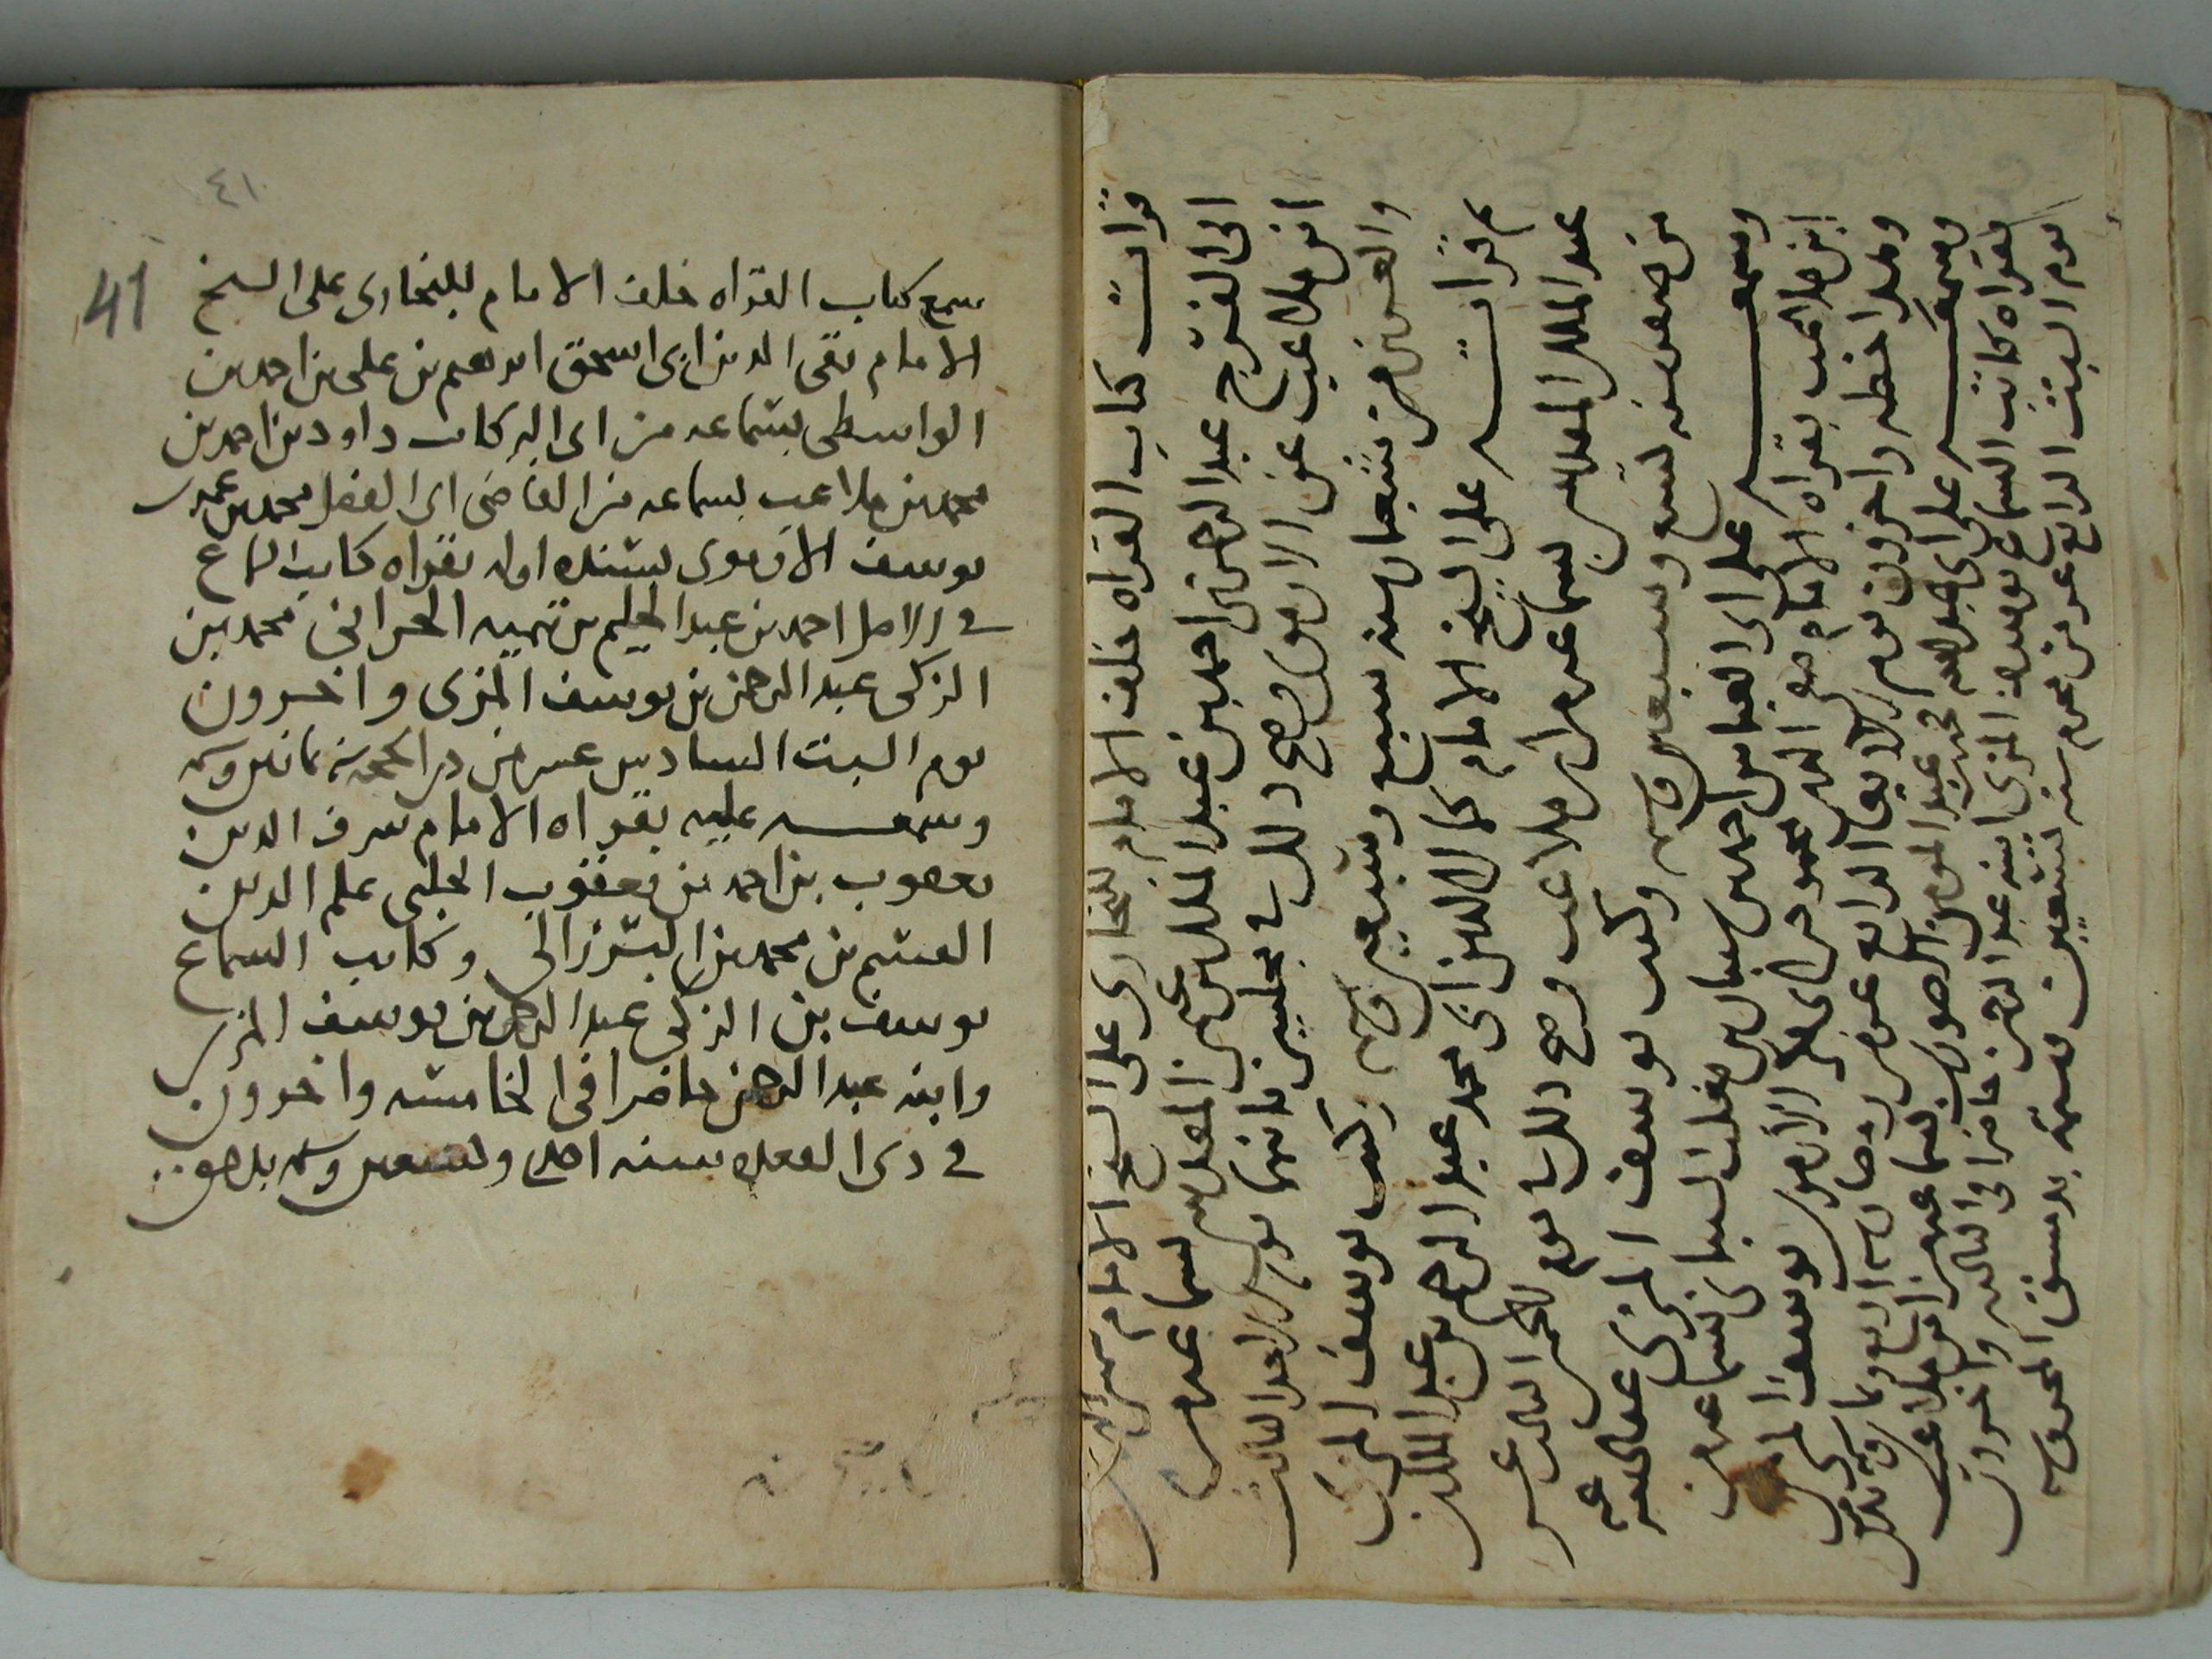 قرأت كتاب القراه خلف الامام للبخارى على الشيخ الامام شمس الدين
ابى الفرج عبد الرحمن بن احمد بن عبد الملك بن عثمن المقدسى بسماعه من
ابن ملاعب عن الارموى وصح ذلك فى مجلسين اخرهما يوم الاحد الثالث
والعشرين من شعبان سنه سبع وسبعين وستمايه وكتب يوسف المزى
ثم قرأته على الشيخ الامام كمال الدين ابى محمد عبد الرحيم بن عبد الملك بن
عبد الملك المقدسى بسماعه من ابن ملاعب وصح ذلك يوم الثالث عشر
من صفر سنه تسع وسبعين وستمايه وكتب يوسف المزى عفا الله عنه
وسمعه على ابى العباس احمد بن شيبان بن تغلب الشيبانى بسماعه من
ابن ملاعب بقراه الامام صفى الدين محمود بن ابى بكر الارموى يوسف المزى
وهذا خطه واخرون يوم الرابع عشر من رمضان سنه اربع وثمانين وستمايه
وسمعه على ابى عبد الله محمد بن عبد المومن الصورى بسماعه من ابن ملاعب
بقراه كاتب السماع يوسف المزى ابنه عبد الرحمن حاضرا فى الثالثه واخرون
يوم السبت الرابع عشر من محرم سنه تسعين وستمايه بدمشق المحروسه
٤١
41
سمع كتاب القراه خلف الامام للبخارى على الشيخ
الامام تقى الدين ابى اسحق ابرهيم بن على بن احمد بن
الواسطى بسماعه من ابى البركات داود بن احمد بن
محمد بن ملاعب بسماعه من القاضى ابى الفضل محمد بن عمر بن
يوسف الارموى بسنده اوله بقراه كاتب السماع
فى الاصل احمد بن عبد الحليم بن تيميه الحرانى محمد بن
الزكى عبد الرحمن بن يوسف المزى واخرون
يوم السبت السادس عشر من ذى الحجه سنه ثمانين وستمايه
وسمعه عليه بقراه الامام شرف الدين
يعقوب بن احمد بن يعقوب الحلبى علم الدين
القسم بن محمد بن البرزالى وكاتب السماع
يوسف بن الزكى عبد الرحمن بن يوسف المزى
وابنه عبد الرحمن حاضرا فى الخامسه واخرون
فى ذى القعده سنه احدى وتسعين وستمايه بدمشق